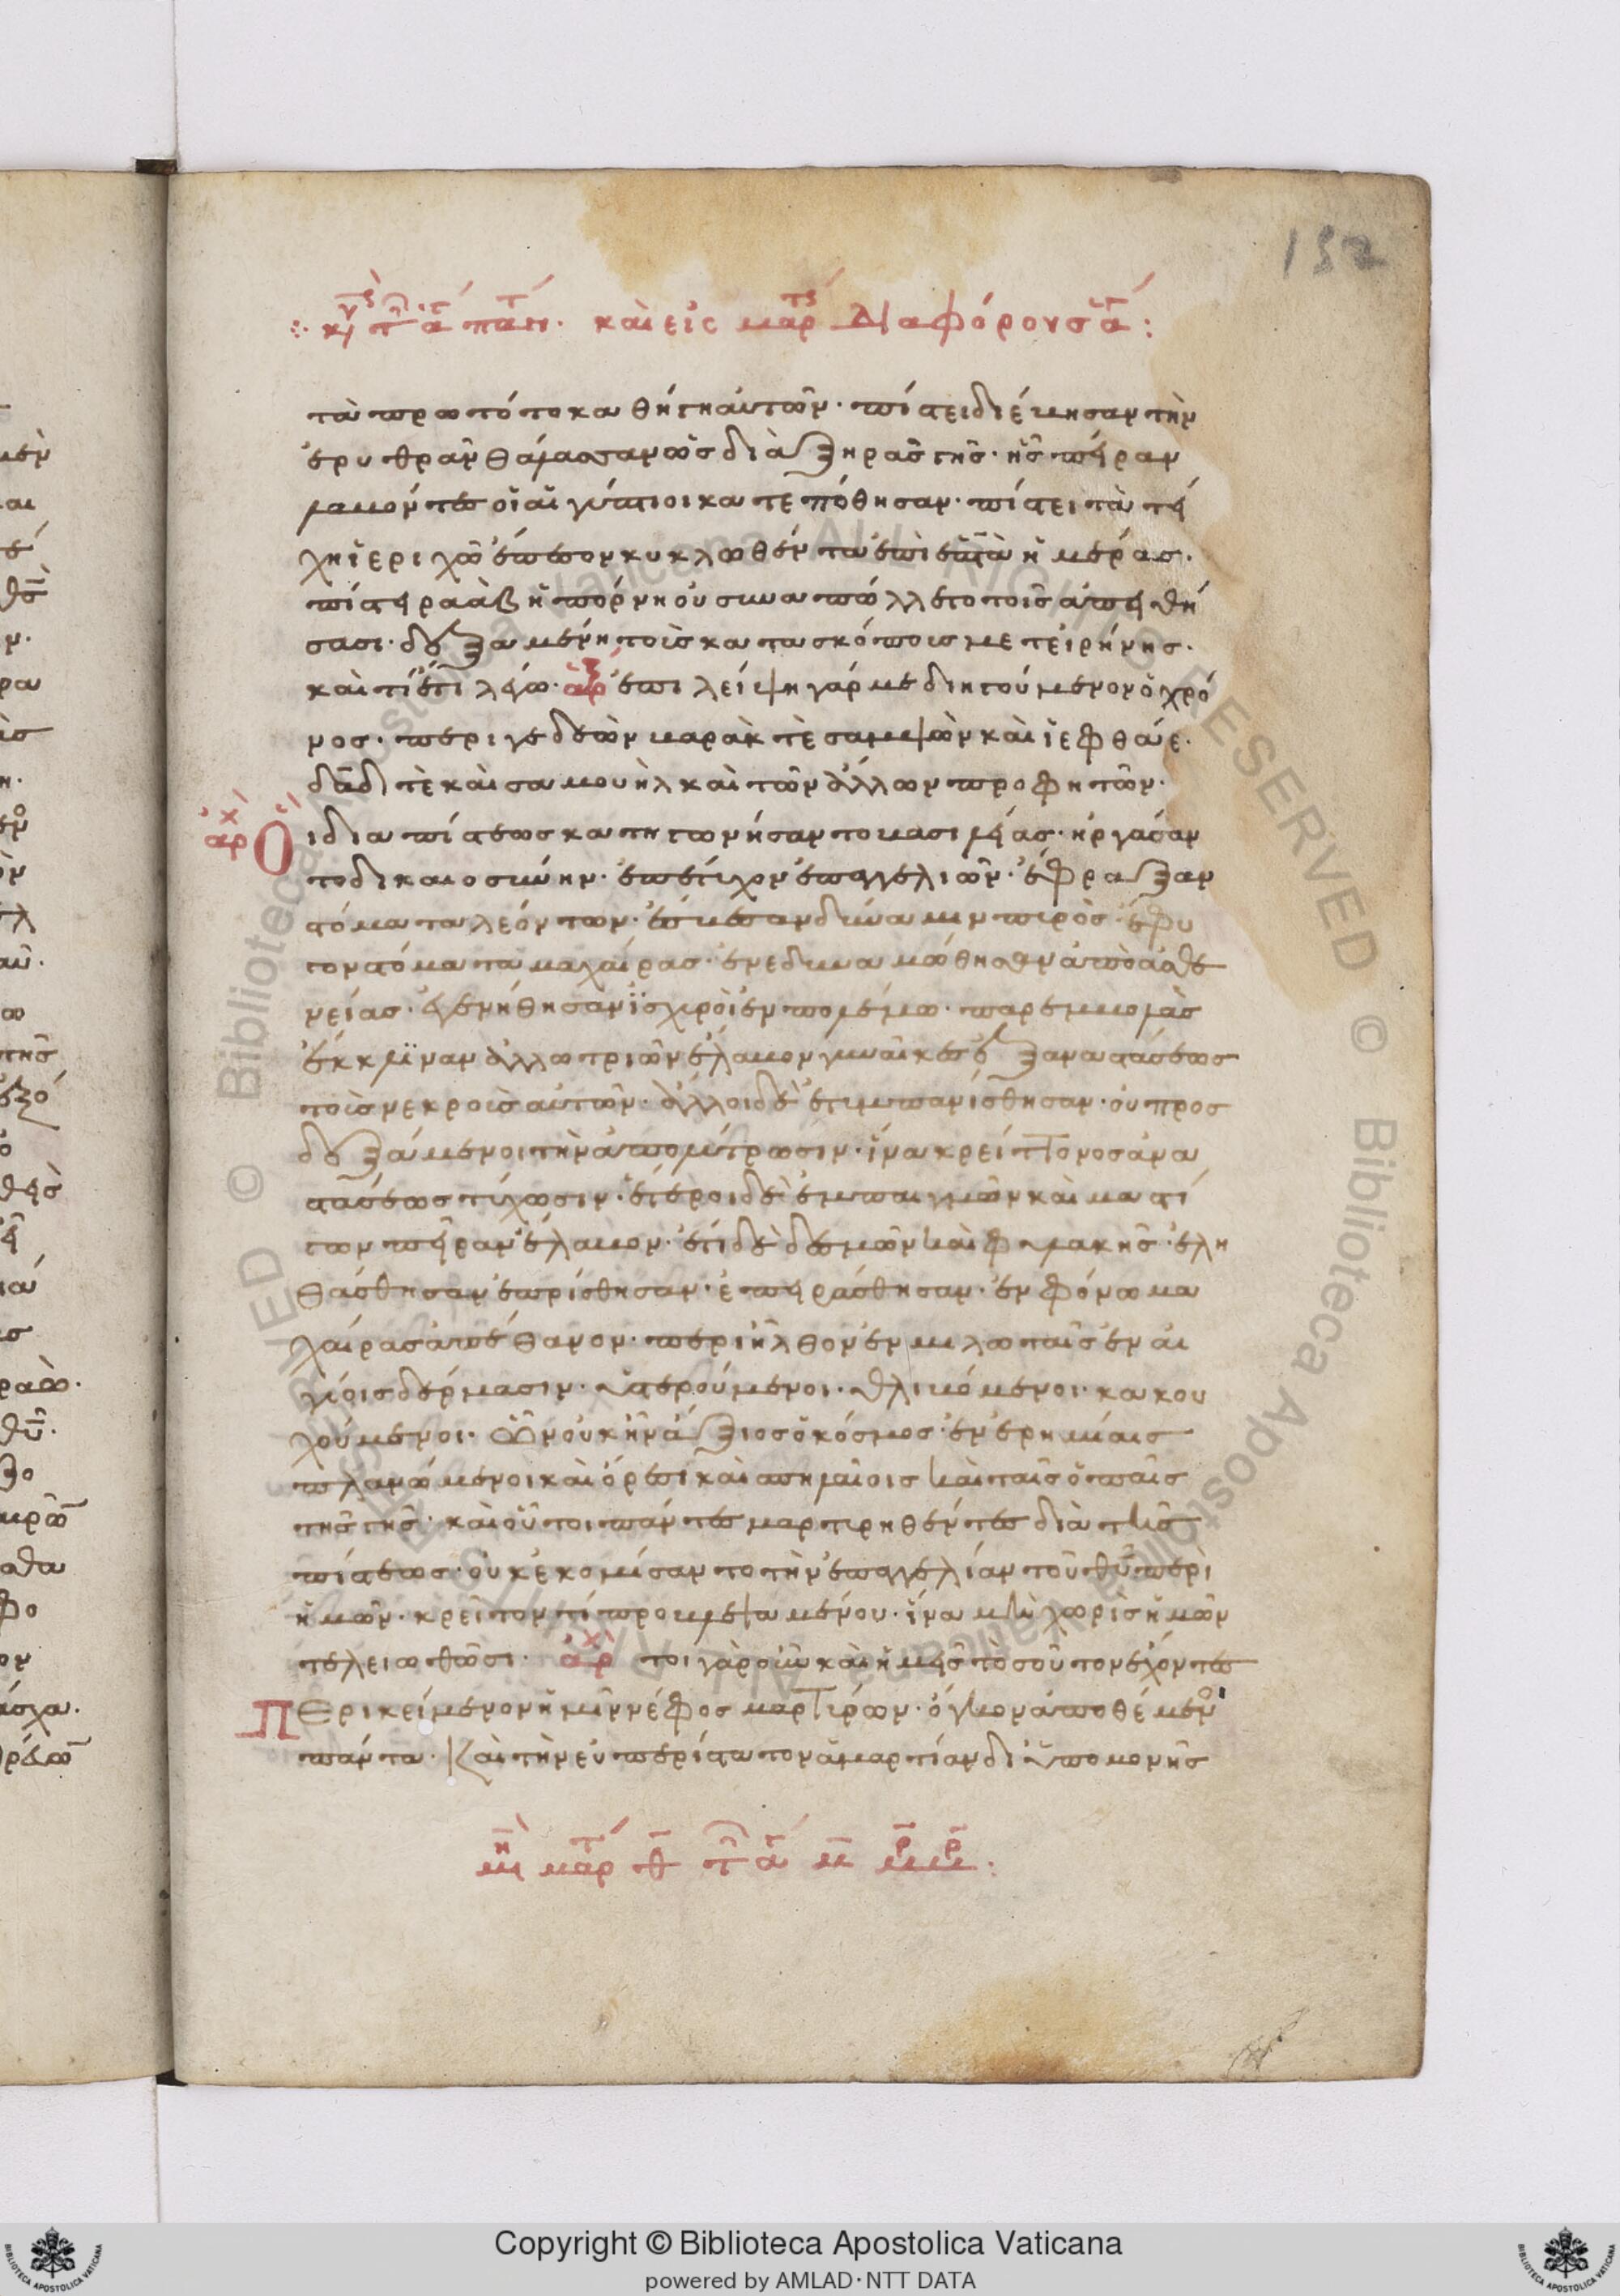 152
καὶ εἰς μαρ διαφόρους ἁ :
τὰ πρωτότοκα θήγη αὐτῶν · πίστει διέβησαν τὴν
ἐρυθρὰν θάλασσαν ὡς διὰ ξηρᾶς γῆς · ἧς πεῖραν
λαβόντες οἱ αἰγύπτιοι κατεπόθησαν · πίστει τὰ τεί
χη ἱεριχῶ ἔπεσον κυκλωθέντα ἐπὶ ἑπτὰ ἡμέρας ·
πίστει ραὰβ ἡ πόρνη οὐ συναπώλλετο τοῖς ἀπειθή
σασι · δεξαμένη τοὺς κατασκόπους μετ εἰρήνης ·
καὶ τί ἔτι λέγω · ἀρ ἐπιλείψη γάρ με διηγούμενον ὁ χρό
νος · περὶ γεδεὼν βαρὰκ τὲ σαμψὼν καὶ ἰεφθάε ·
δᾱδ τὲ καὶ σαμουὴλ καὶ τῶν ἄλλων προφητῶν ·
ἀρχ Οἱ διὰ πίστεως κατηγωνήσαντο βασιλείας · ἠργάσαν
το δικαιοσύνην · ἐπέτυχον ἐπαγγελιῶν · ἔφραξαν
στόματα λεόντων · ἔσβεσαν δύναμιν πυρὸς · ἔφυ
γον στόματα μαχαίρας · ἐνεδυναμώθησαν ἀπὸ ἀσθε
νείας · ἐγενήθησαν ἰσχυροὶ ἐν πολέμω · παρεμβολὰς
ἔκκλιναν ἀλλωτριῶν ἔλαβον γυναῖκες ἐξ αναστάσεως
τοὺς νεκροὺς αὐτῶν · ἄλλοι δὲ ἐτυμπανίσθησαν · οὐ προσ
δεξάμενοι τὴν ἀπολύτρωσιν · ἵνα κρείττονος ἀνα
στάσεως τύχωσιν · ἕτεροι δὲ ἐμπαιγμῶν καὶ μαστί
γων πεῖραν ἔλαβον · ἔτι δὲ δεσμῶν καὶ φυλακῆς · ἐλη
θάσθησαν ἐπρίσθησαν · ἐπειράσθησαν · ἐν φόνω μα
χαίρας ἀπέθανον · περιῆλθον ἐν μιλωταῖς ἐν αἰ
γείοις δέρμασιν · ὑστερούμενοι · θλιβόμενοι · κακου
χούμενοι · ὧν οὐκ ἦν ἄξιος ὁ κόσμος · ἐν ἐρημίαις
πλανώμενοι καὶ ὄρεσι καὶ σπηλαίοις καὶ ταῖς ὀπαῖς
τῆς γῆς · καὶ οὗτοι πάντες μαρτυρηθέντες διὰ τῆς
πίστεως · οὐκ ἐκομίσαντο τὴν ἐπαγγελίαν τοῦ θῡ περὶ
ἡμῶν · κρεῖττόν τί προβλεψαμένου · ἵνα μὴ χωρὶς ἡμῶν
τελειωθῶσι · ἀρχ τοιγὰροῦν καὶ ἡμεῖς τὸσοῦτον ἔχοντες
Περικείμενον ἡμῖν νέφος μαρτύρων · ὄγκον ἀποθέμεν
πάντα · καὶ τὴν εὐπερίστατον ἁμαρτίαν δι ὑπομονῆς
Copyright © Biblioteca Apostolica Vaticana
powered by AMLAD·NTT DATA